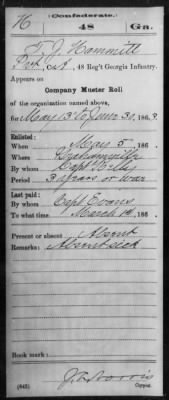 H | Confederate. | Ga.
48
T. J. Hammitt
Pvt, Co. K, 48 Reg't Georgia Infantry.
Appears on
Company Muster Roll
of the organization named above,
for May 13 to June 30, 186 .
Enlisted:
When May 5, 186 .
Where
By whom Capt
Period 3 years or war
Last paid:
By whom Capt Evans
To what time March 1st, 186 .
Present or absent Absent
Remarks: Absent sick
Book mark:
(642)
Copyist.